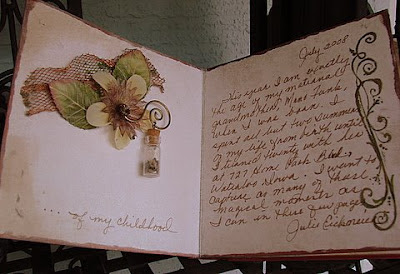 .... of my childhood
July 2008
This year I am exactly
the age of my maternal
grandmother, Mame Funk,
when I was born. I
spent all but two summers
of my life from birth until
I turned twenty with her
at 727 Home Park Blvd.
Waterloo Iowa. I want to
capture as many of those
magical moments as
I can in these few pages
Julie